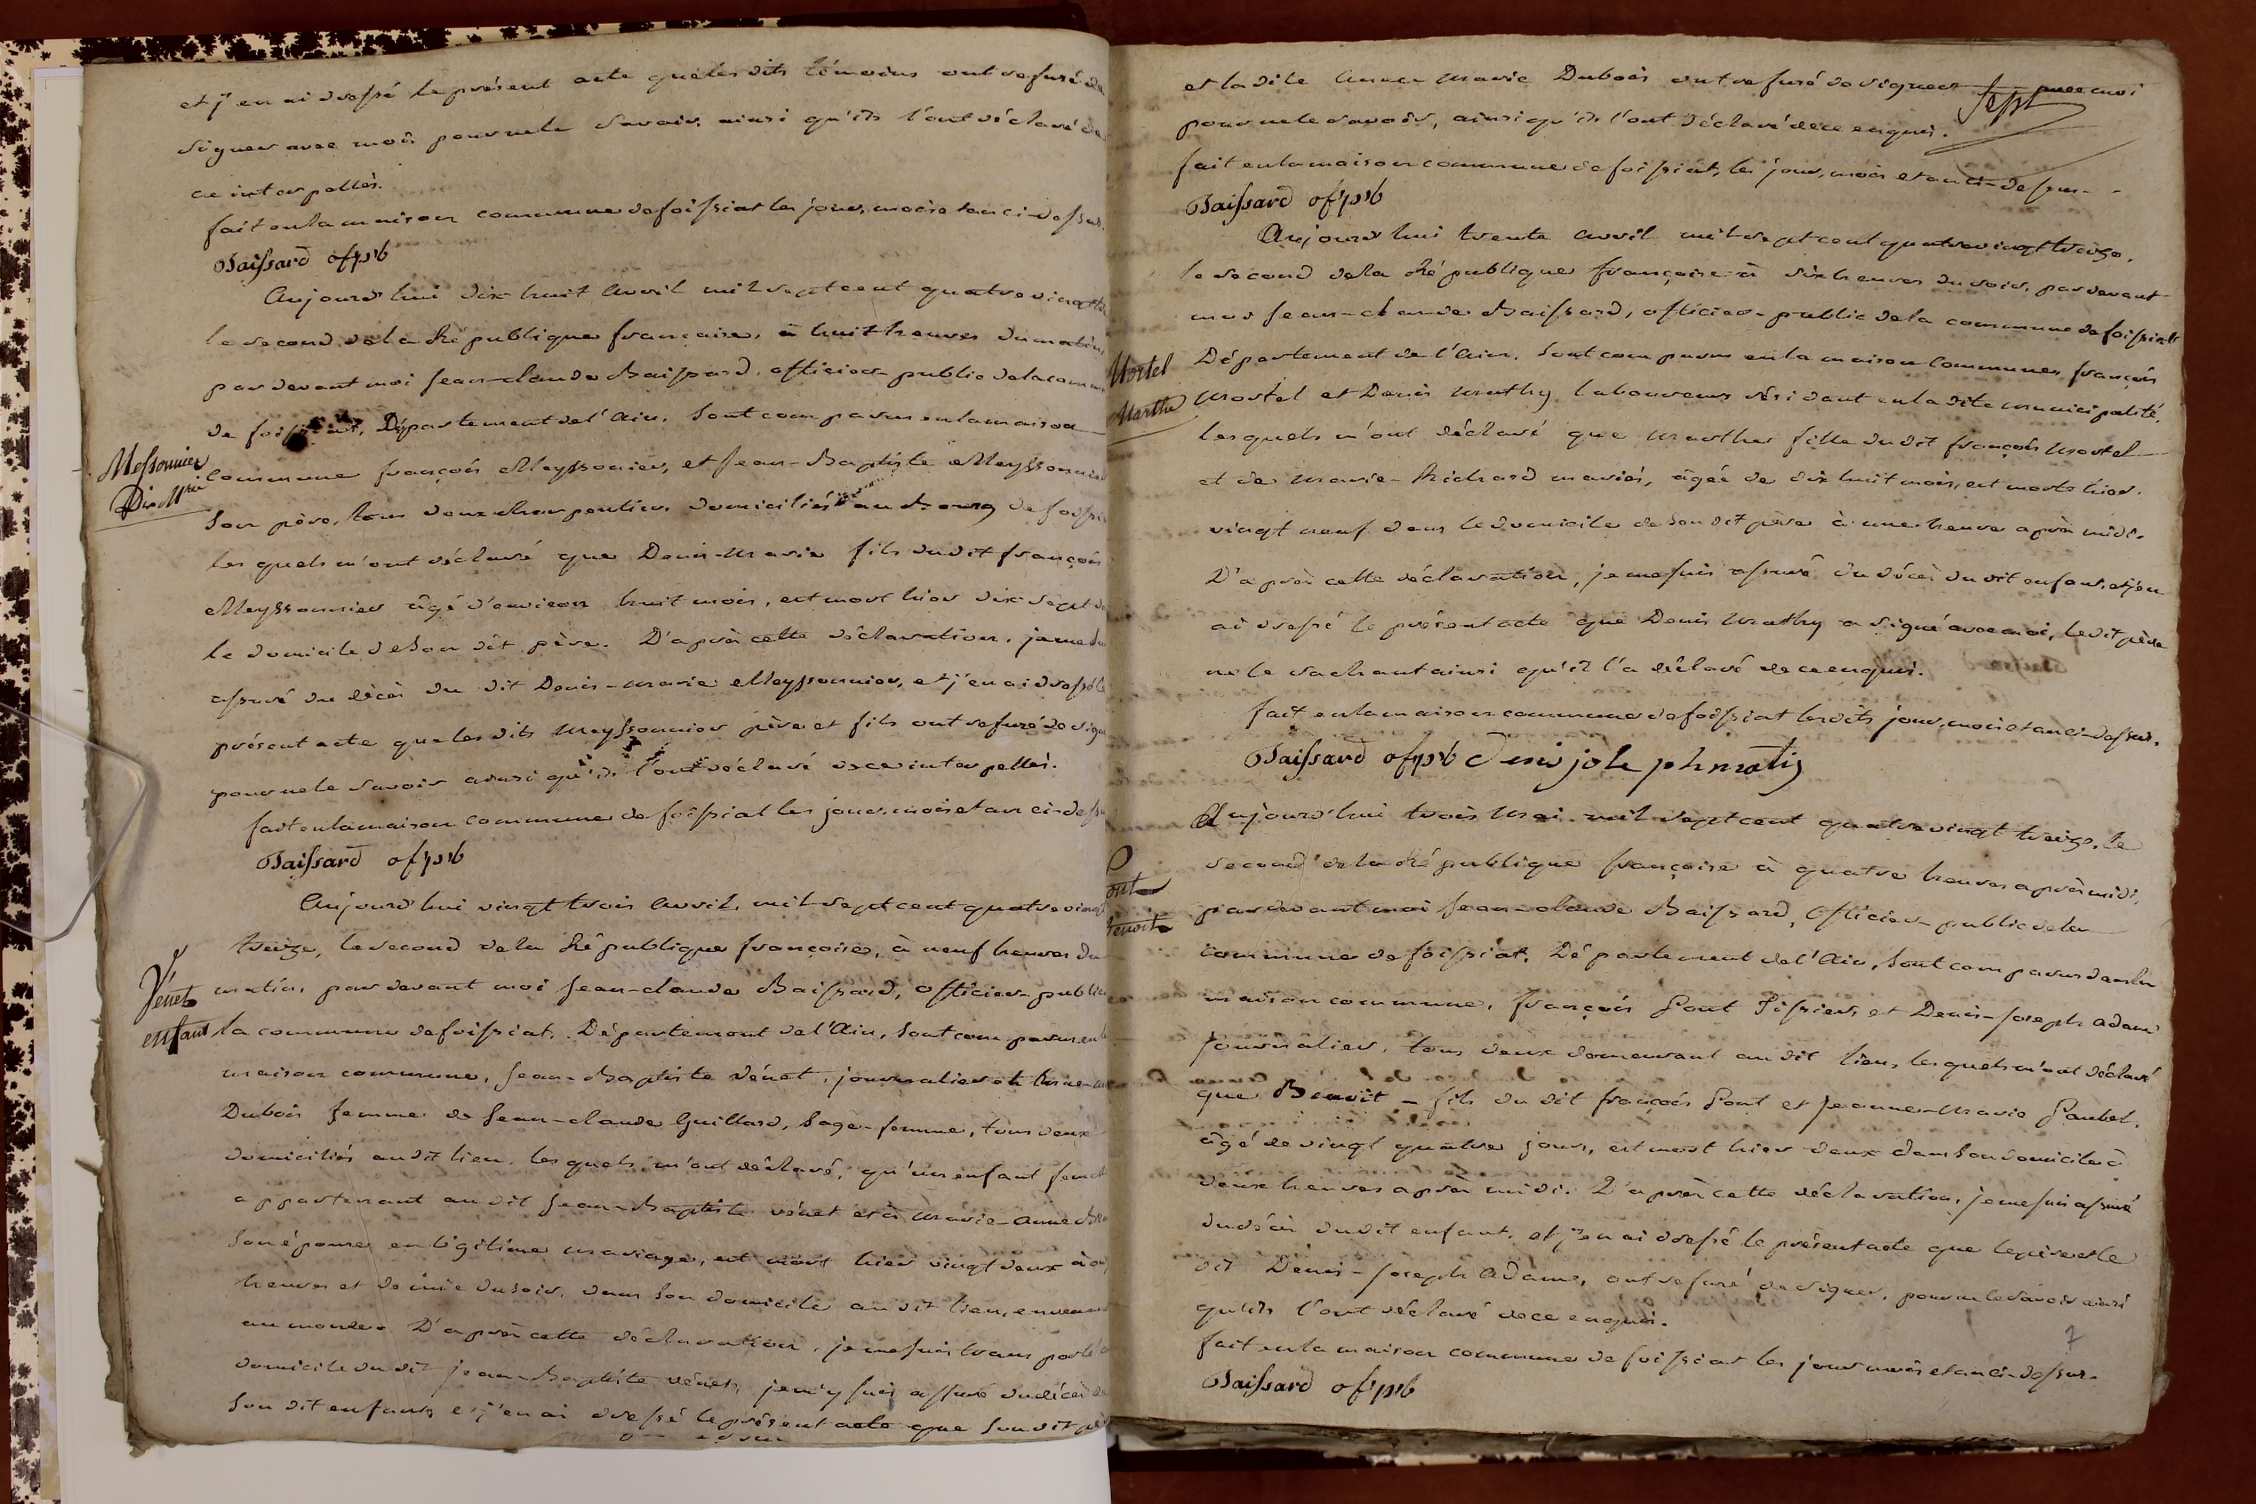 et j'en ai dressé le présent acte que les dits témoins ont refusé de
signer avec moi pour ne le savoir, ainsi qu'ils l'ont déclaré de
ce interpellés.
fait en la maison commune de foissiat les jour, mois et an ci-dessus.
Baissard ofpub
Aujourd'hui dix huit avril mil sept cent quatre vingt
le second de la République françaire, à huit heures du matin,
par devant moi Jean-claude Baissard, officier public de la commune
de foissiat, Département de l'Ain, sont comparus en la maison
Messonnier
Dis Mrie
commune françois Meyssonnier, et Jean-Baptiste Meyssonnier
son père, tous deux charpentiers domiciliés au bourg de foissiat
lesquels m'ont déclaré que Denis-Marie fils du dit françois
Meyssonnier âgé d'environ huit mois, est mort hier dix sept
le domicile de son dit père. D'après cette déclaration, je me suis
assuré du décès du dit Denis-Marie Meyssonnier, et j'en ai dressé le
présent acte que les dits Meyssonnier père et fils ont refusé de signer
pour ne le savoir ainsi qu'ils l'ont déclaré de ce interpellés.
fait en la maison commune de foissiat les jour, mois et an ci-dessus
Baissard ofpub
Aujourd'hui vingt trois avril mil sept cent quatre vingt
treize, le second de la République françoise, à neuf heures du
Vénet
enfant
matin, par devant moi Jean-claude Baissard, officier public
la commune de foissiat, Département de l'Ain, sont comparus en la
maison commune, Jean-Baptiste Vénet, journalier et
Dubois femme de Jean-claude Guillard, sage-femme, tous deux
domiciliés au dit lieu, lesquels m'ont déclaré, qu'un enfant
appartenant au dit Jean-Baptiste vénet et à Marie-Anne
son épouse en légitime mariage, est mort hier vingt deux à
heures et demie du soir, dans son domicile au dit lieu, en venant
au monde. D'après cette déclaration, je me suis transporté
domicile du dit jean-Baptiste vénet, je m'y suis assuré du décès
son dit enfant, et j'en ai dressé le présent acte que son dit père
et la dite Anne Marie Dubois ont refusé de signer avec moi
sept
pour ne le savoir, ainsi qu'ils l'ont déclaré de ce enquis.
fait en la maison commune de foissiat, les jour, mois et an ci-dessus
Baissard ofpub
Aujourd'hui trente avril mil sept cent quatre vingt treize,
le second de la République françoise à six heures du soir, par devant
moi Jean-claude Baissard, officier-public de la commune de foissiat
Mortel
Marthe
Département de l'Ain, sont comparus en la maison commune, françois
Mortel et Denis Mathy laboureurs résidant en la dite municipalité,
lesquels m'ont déclaré que Marthe fille du dit françois Mortel
et de Marie-Richard mariés, âgée de dix huit mois, est morte hier
vingt neuf dans le domicile de son dit père à une heure après midi.
D'après cette déclaration, je me suis assuré du décès du dit enfant, et j'en
ai dressé le présent acte que Denis Mathy a signé avec moi, le dit père
ne le sachant ainsi qu'il l'a déclaré de ce enquis.
fait en la maison commune de foissiat les dits jour, mois et an ci-dessus.
Baissard ofpub Denis joseph matij
Aujourd'hui trois Mai mil sept cent quatre vingt treize, le
second de la République françoise à quatre heures après midi,
pardevant moi Jean-claude Baissard, officier-public de la
commune de foissiat, Département de l'Ain, sont comparus dans la
maison commune, françois Pont Tissier, et Denis-Joseph Adam
journalier, tous deux demeurant au dit lieu, lesquels m'ont déclaré
que Benoit - fils du dit françois Pont et Jeanne-Marie
âgé de vingt quatre jours, est mort hier deux dans son domicile à
deux heures après midi. D'après cette déclaration, je me suis assuré
du décès du dit enfant, et j'en ai dressé le présent acte que le père et le
dit Denis-Joseph Adam, ont refusé de signer, pour ne le savoir ainsi
qu'ils l'ont déclaré de ce enquis.
7
fait en la maison commune de foissiat les jour mois et an ci-dessus.
Baissard ofpub